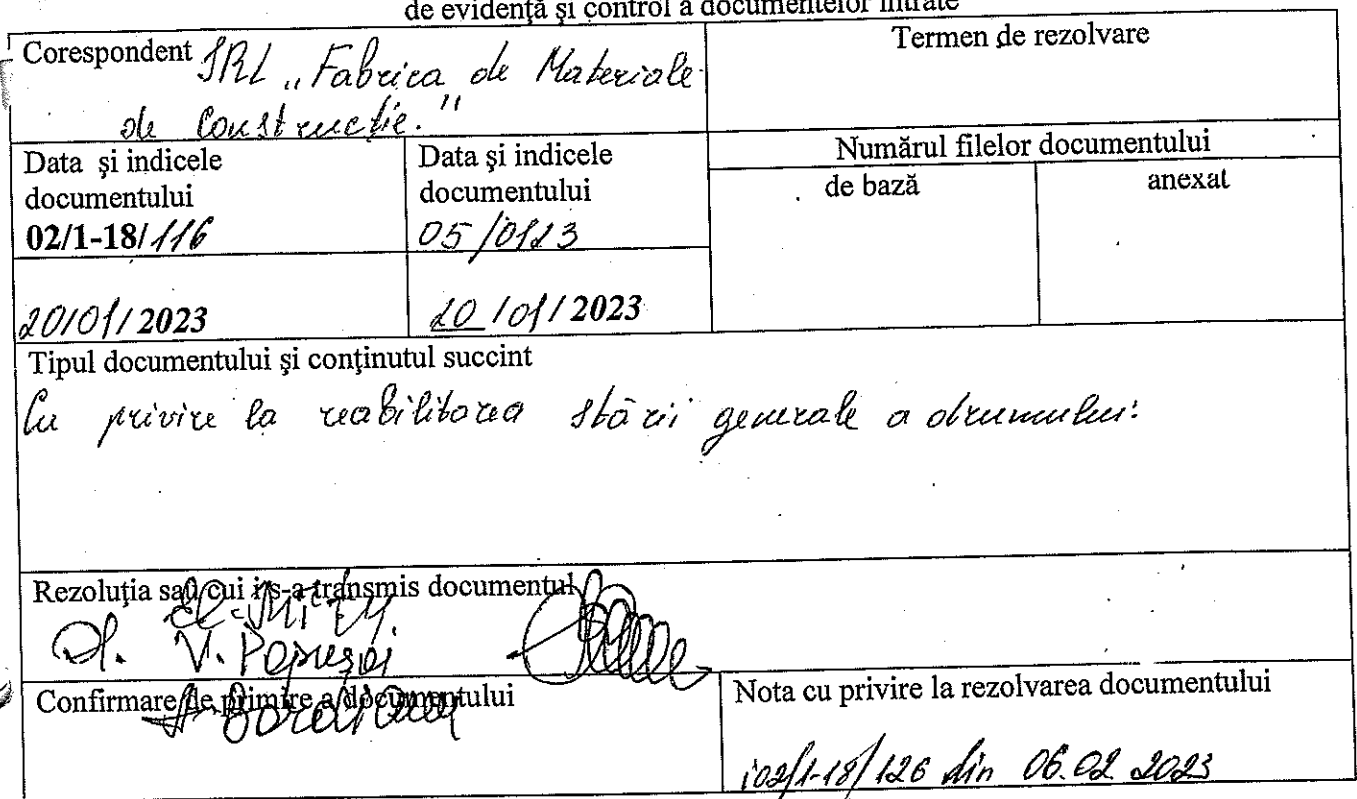 de evidență și control a documentelor intrate
Corespondent SRL „Fabrica de Materiale
de Construcție."
Termen de rezolvare
Data și indicele
documentului
02/1-18/116
Data și indicele
documentului
05/0123
Numărul filelor documentului
de bază
anexat
20/01/2023
20/01/2023
Tipul documentului și conținutul succint
Cu privire la reabilitarea stării generale a drumului.
Rezoluția sau cui i s-a transmis documentul
V. Popușoi
Confirmare de primire a documentului
Nota cu privire la rezolvarea documentului
i02/1-18/126 din 06.02.2023